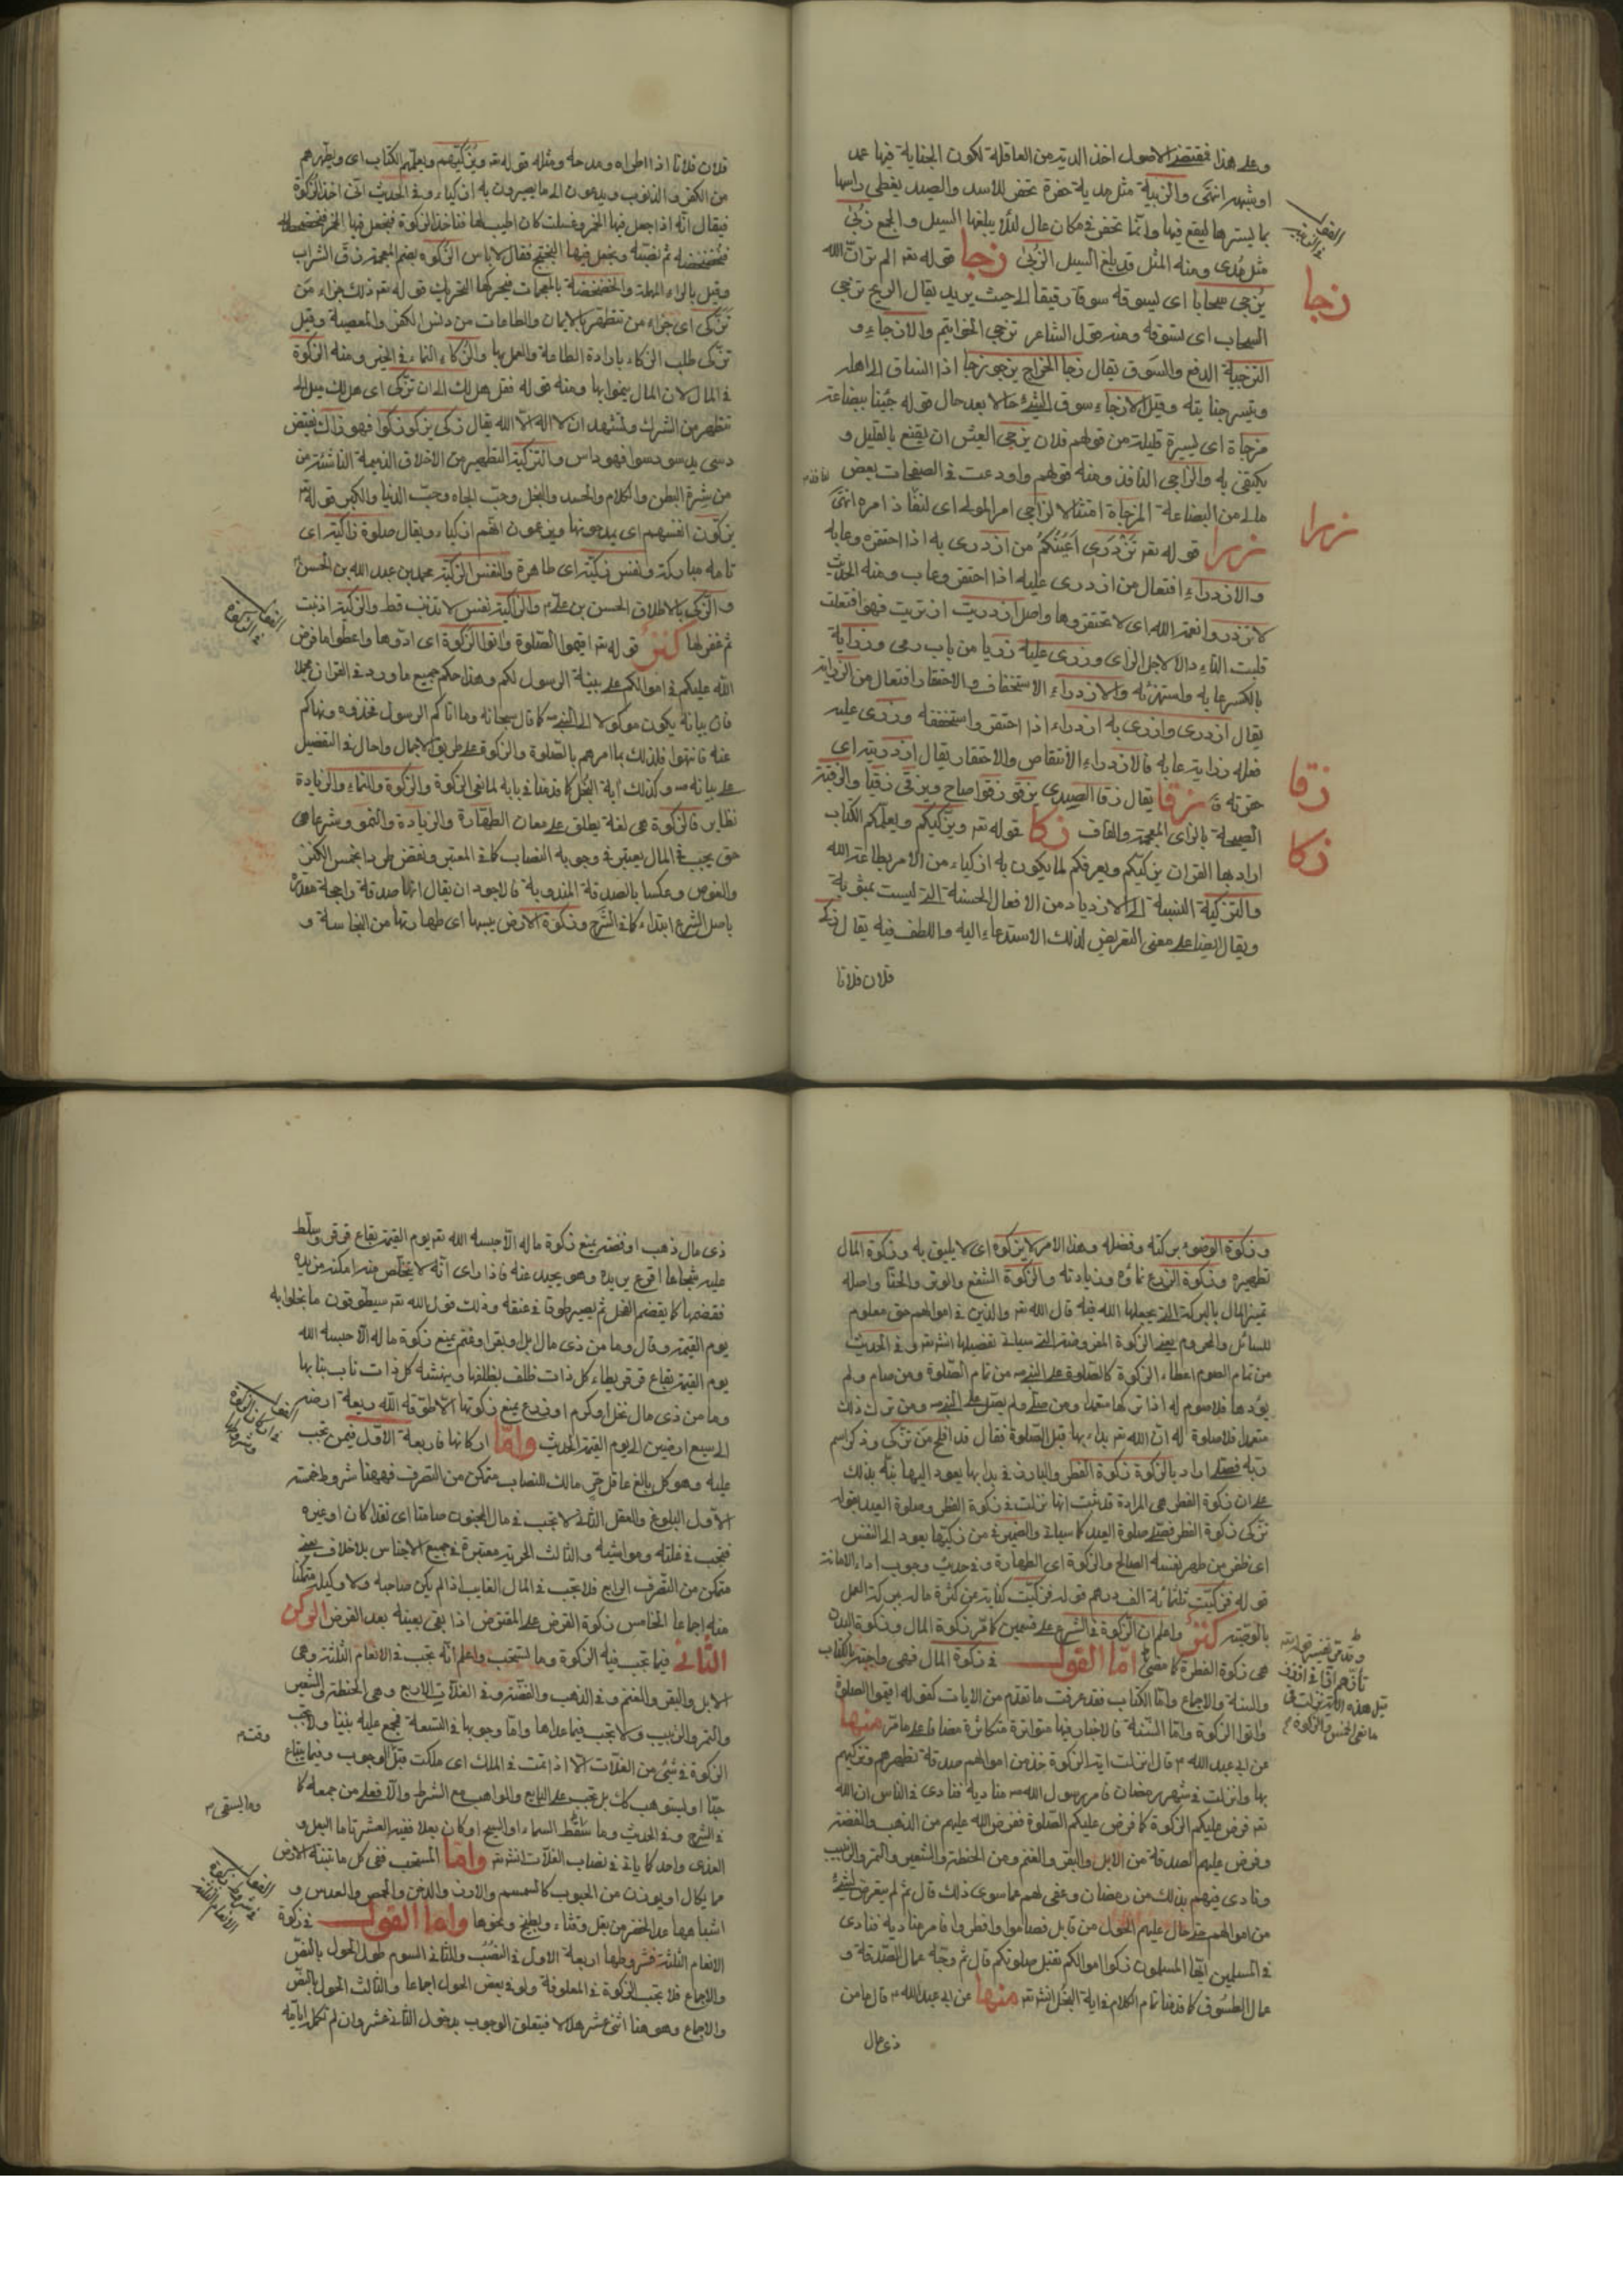 وعلى هذا فمقتضى الاصول اخذ الدية من العاقلة لكون الجناية فيها عمد
او شبهه انتهى والزبية مثل مدية حفرة تحفر للاسد والصيد يغطى راسها
بما يسترها ليقع فيها وانما تحفر في مكان عال لئلا يبلغها السيل والجمع زُبىً
مثل مُدى ومنه المثل قد بلغ السيل الزُبى زجا قوله تع الم تر ان الله
يُزجى سحابا اى يسوقه سوقا رقيقا الى حيث يريد يقال الريح تزجى
السحاب اى تسوقه ومنه قول الشاعر تزجى الخواتيم والازجاء و
التزجية الدفع والسَوق يقال زجا الخراج يزجو زجا اذا انساق الى اهله
وتيسر جبايته وقيل الازجاء سوق الشئ حالا بعد حال قوله جئنا ببضاعة
مزجاة اى يسيرة قليلة من قولهم فلان يزجى العيش ان يقنع بالقليل و
يكتفى به والزاجى النافذ ومنه قولهم واودعت في الصفحات بعض
مالى من البضاعة المزجاة امتثالا لزاجى امر المولى اى لنفاذ امره انتهى
زرا قوله تع تَزْدَرى اَعْيُنُكُم من ازدرى به اذا احتقره وعابه
والازدراء افتعال من ازدرى عليه اذا احتقر وعاب ومنه الحديث
لا تزدروا نعمة الله اى لا تحتقروها واصل ازدريت ازتريت فهو افتعلت
قلبت التاء دالا لاجل الزاى وزرى عليه زريا من باب رمى وزراية
بالكسر عابه واستهزئ به والازدراء الاستخفاف والاحتقار افتعال من الزراية
يقال ازدرى وازرى به ازدراء اذا احتقر واستخففه وزرى عليه
فعله زراية عابه فالازدراء الانتقاص والاحتقار يقال ازدريته اى
حقرته زقا يقال زقا الصدى يزقو زقوا صاح ويزقى زقيا والزقية
الصيحة بالزاى المعجمة والقاف زكا قوله تع ويزكيكم ويعلمكم الكتاب
اراد بها القران يزكيكم ويعرفكم لما يكون به ازكياء من الامر بطاعة الله
والتزكية النسبة الى الازدياد من الافعال الحسنة التى ليست بمثوبة
ويقال ايضا على معنى التعريض لذلك الاستدعاء اليه واللطف فيه يقال زكى
فلان فلانا
زجا
زرا
زقا
زكا
فلان فلانا اذا اطراه ومدحه ومثله قوله تع ويُزَكّيهم ويعلّمهم الكتاب اى ويطهرهم
من الكفر والذنوب ويدعون الى ما يصيرون به ازكياء وفي الحديث اتى اخذ الزكوة
فيقال انه اذا جعل فيها الخمر وغسلت كان اطيب لها فناخذ الزكوة فنجعل فيها الخمر
ثم نصبه ونجعل فيها البختج فقال لا باس الزكوة بضم المعجمة زق الشراب
وقيل بالراء المهملة والخضخضة بالمعجمات تحريكها التحريك قوله تع ذلك جزاء من
تزكى اى جزاء من تتطهر بالايمان والطاعات من دنس الكفر والمعصية وقيل
تزكى طلب الزكاء بارادة الطاعة والعمل بها والزكاء النماء في الخير ومنه الزكوة
في المال لان المال ينمو بها ومنه قوله فقل هل لك الى ان تزكى اى هل لك ميل الى
تتطهر من الشرك وتشهد ان لا اله الا الله يقال زكى يزكو زكوا فهو زاك نقيض
دسى يدسو دسوا فهو داس والتزكية التطهير من الاخلاق الذميمة الناشئة من
من شره البطن والكلام والحسد والبخل وحب الجاه وحب الدنيا والكبر قوله تع
يزكون انفسهم اى يمدحونها ويزعمون انهم ازكياء ويقال صلوة زاكية اى
تامه مباركة ونفس زكية اى طاهرة والنفس الزكية محمد بن عبد الله بن الحسن
والزكى بالاطلاق الحسن بن على والزاكية نفس لا تذنب قط والزكية اذنبت
ثم غفر لها كنز قوله تع اقيموا الصلوة واتوا الزكوة اى ادوها واعطوا ما فرض
الله عليكم في اموالكم على بينة الرسول لكم وهذا حكم جميع ما ورد في القران مجملا
فان بيانه يكون موكولا الى النبي ص كما قال سبحانه وما اتاكم الرسول فخذوه ونهاكم
عنه فانتهوا فلذلك ما امرهم بالصلوة والزكوة على طريق الاجمال واحال في التفصيل
على بيانه ص وكذلك اية كما قدمنا في بابه لمانعى الزكوة والزكوة والنماء والزيادة
نظاير فالزكوة هي لغة يطلق على معان الطهارة والزيادة والنمو وشرعا هى
حق يجب في المال يعتبر في وجوبه النصاب كما في المعتبر ونقض طردا بخمس الكنز
والغوص وعكسا بالصدقة المندوبة فالاجود ان يقال انها صدقة راجحة مقدرة
باصل الشرع ابتداء كما في الشرح وزكوة الارض يبسها اى طهارتها من النجاسة و
وزكوة الوضوء بركته وفضله وهذا الامر لا يزكوه اى لا يليق به وزكوة المال
تطهيره وزكوة الزرع نماؤه وزيادته والزكوة الشفع والوتر والخسا واصله
تميز المال بالبركة التى يجعلها الله فيه قال الله تع والذين في اموالهم حق معلوم
للسائل والمحروم يعنى الزكوة المفروضة التى سياتى تفصيلها انشر تع وفي الحديث
من تمام الصوم اعطاء الزكوة كالصلوة على النبي ص من تمام الصلوة ومن صام ولم
يؤدها فلا صوم له اذا تركها متعمدا ومن صلى ولم يصل على النبي ص ومن ترك ذلك
متعمدا فلا صلوة له ان الله تع بدء بها قبل الصلوة فقال قد افلح من تزكى وذكر اسم
ربه فصلى اراد بالزكوة زكوة الفطر والبارز في بدا بها يعود اليها نبه بذلك
على ان زكوة الفطر هى المرادة قد ثبت انها نزلت في زكوة الفطر وصلوة العيد بقوله
تزكى زكوة الفطر فصلى صلوة العيد كما سياتى والضمير في من زكيها يعود الى النفس
اى ظفر من طهر نفسه الصالح والزكوة اى الطهارة وفي حديث وجوب اداء الامانة
قوله فزكيت ثلثمائة الف درهم قوله فزكيت كناية عن كثرة ماله ببركة العمل
بالوصية كنز واعلم ان الزكوة في الشرع على قسمين كما مر زكوة المال وزكوة البدن
هى زكوة الفطرة كما مضى اما القول في زكوة المال فهى واجبة بالكتاب
والسنة والاجماع واما الكتاب فقد عرفت ما تقدم من الايات كقوله اقيموا الصلوة
واتوا الزكوة واما السنة فالاخبار فيها متواترة متكاثرة مضافا على ما مر منها
عن ابى عبد الله ع قال نزلت اية الزكوة خذ من اموالهم صدقة تطهرهم وتزكيهم
بها وانزلت في شهر رمضان فامر رسول الله ص مناديه فنادى في الناس ان الله
تع فرض عليكم الزكوة كما فرض عليكم الصلوة ففرض الله عليهم من الذهب والفضة
وفرض عليهم الصدقة من الابل والبقر والغنم ومن الحنطة والشعير والتمر والزبيب
ونادى فيهم بذلك من رمضان وعفى لهم عما سوى ذلك قال ثم لم يتعرض لشئ
من اموالهم حتى حال عليهم الحول من قابل فصاموا وافطروا فامر مناديه فنادى
في المسلمين ايها المسلمون زكوا اموالكم تقبل صلوتكم قال ثم وجه عمال الصدقة و
عمال الطسوق كما قدمنا تمام الكلام في اية انشر تع منها عن ابى عبد الله ع قال ما من
ذى مال
ذى مال ذهب او فضة يمنع زكوة ماله الا حبسه الله تع يوم القيمة بقاع قرقر وسلط
عليه شجاعا اقرع يريده وهو يحيد عنه فاذا راى انه لا يتخلص منه امكنه من يده
فقضمها كما يقضم الفحل ثم يصير طوقا في عنقه وذلك قول الله تع سيطوقون ما بخلوا به
يوم القيمة وقال وما من ذى مال ابل او بقر او غنم يمنع زكوة ماله الا حبسه الله
يوم القيمة بقاع قرقر يطاءه كل ذات ظلف بظلفها وينهشه كل ذات ناب بنابها
وما من ذى مال نخل او كرم او زرع يمنع زكوتها الا طوقه الله ريعة ارضه
الى سبع ارضين الى يوم القيمة الحديث واما اركانها فاربعة الاول فيمن تجب
عليه وهو كل بالغ عاقل حر مالك للنصاب متمكن من التصرف فههنا شروط خمسة
الاول البلوغ والعقل الثانى لا تجب في مال المجنون صامتا اى نقدا كان او غيره
فتجب في غلته ومواشيه والثالث الحرية معتبرة في جميع الاجناس بلا خلاف يعنى
متمكن من التصرف الرابع فلا تجب في المال الغايب اذا لم يكن صاحبه ولا وكيله متمكنا
منه اجماعا الخامس زكوة القرض على المقترض اذا بقى بعينه بعد القرض الركن
الثانى فيما تجب فيه الزكوة وما تستحب واعلم انه تجب في الانعام الثلثة وهى
الابل والبقر والغنم وفي الذهب والفضة وفي الغلات الاربع وهى الحنطة والشعير
والتمر والزبيب ولا تجب فيما عداها واما وجوبها في التسعة فمجمع عليه بيننا ولا تجب
الزكوة في شئ من الغلات الا اذا نمت في الملك اى ملكت قبل الوجوب وفيما يبتاع
حبا او يستوهب كك بل تجب على البايع والواهب مع الشرط والا فعلى من جمعه كما
في الشرح وفي الحديث وما سقط السماء او السيح او كان بعلا ففيه العشر تاما البعل و
العذى واحد كما ياتى في نصاب الغلات انشر تع واما المستحب ففى كل ما تنبته الارض
مما يكال او يوزن من الحبوب كالسمسم والارز والدخن والحمص والعدس و
اشباهها عدا الخضر من بقل وقثاء وبطيخ ونحوها واما القول في زكوة
الانعام الثلثة فشروطها اربعة الاول في النصب والثانى السوم طول الحول بالنص
والاجماع فلا تجب الزكوة في المعلوفة ولو في بعض الحول اجماعا والثالث الحول بالنص
والاجماع وهو هنا اثنى عشر هلالا فيتعلق الوجوب بدخول الثانى عشر وان لم تكمل ايامه